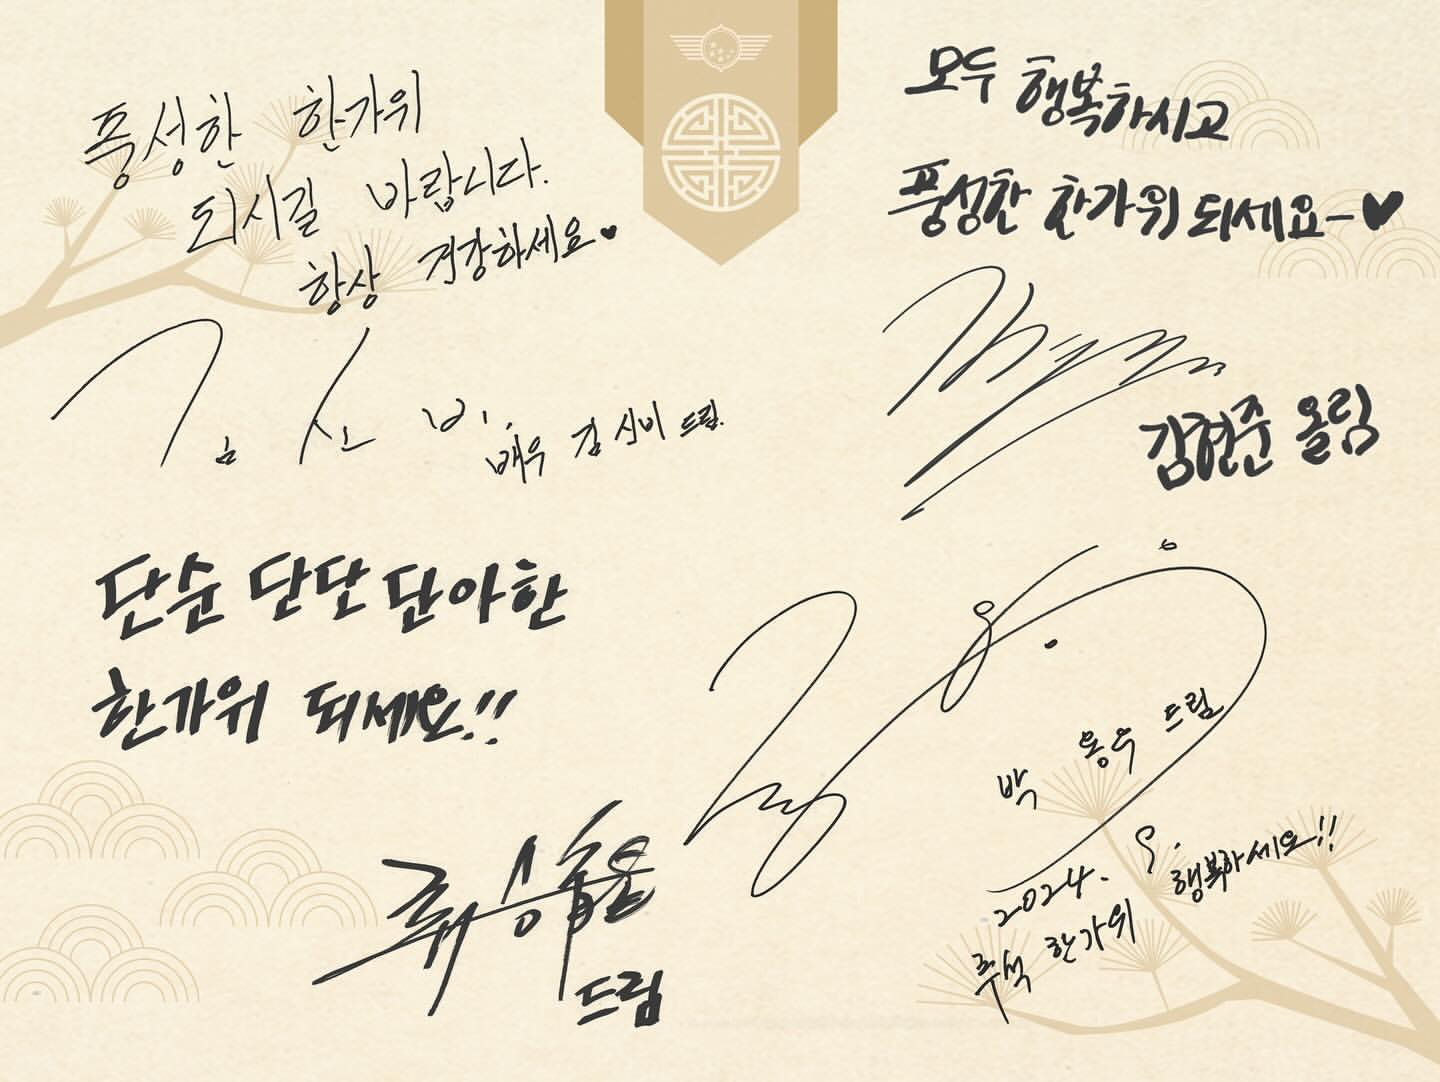 풍성한 한가위
되시길 바랍니다.
항상 건강하세요♥
김 신 비.
배우 김 신비 드림.
모두 행복하시고
풍성한 한가위 되세요-♥
김현준 올림
단순 단단 단아한
한가위 되세요!!
류승룡
드림
박 용우 드림
2024. 9.
추석 한가위 행복하세요!!